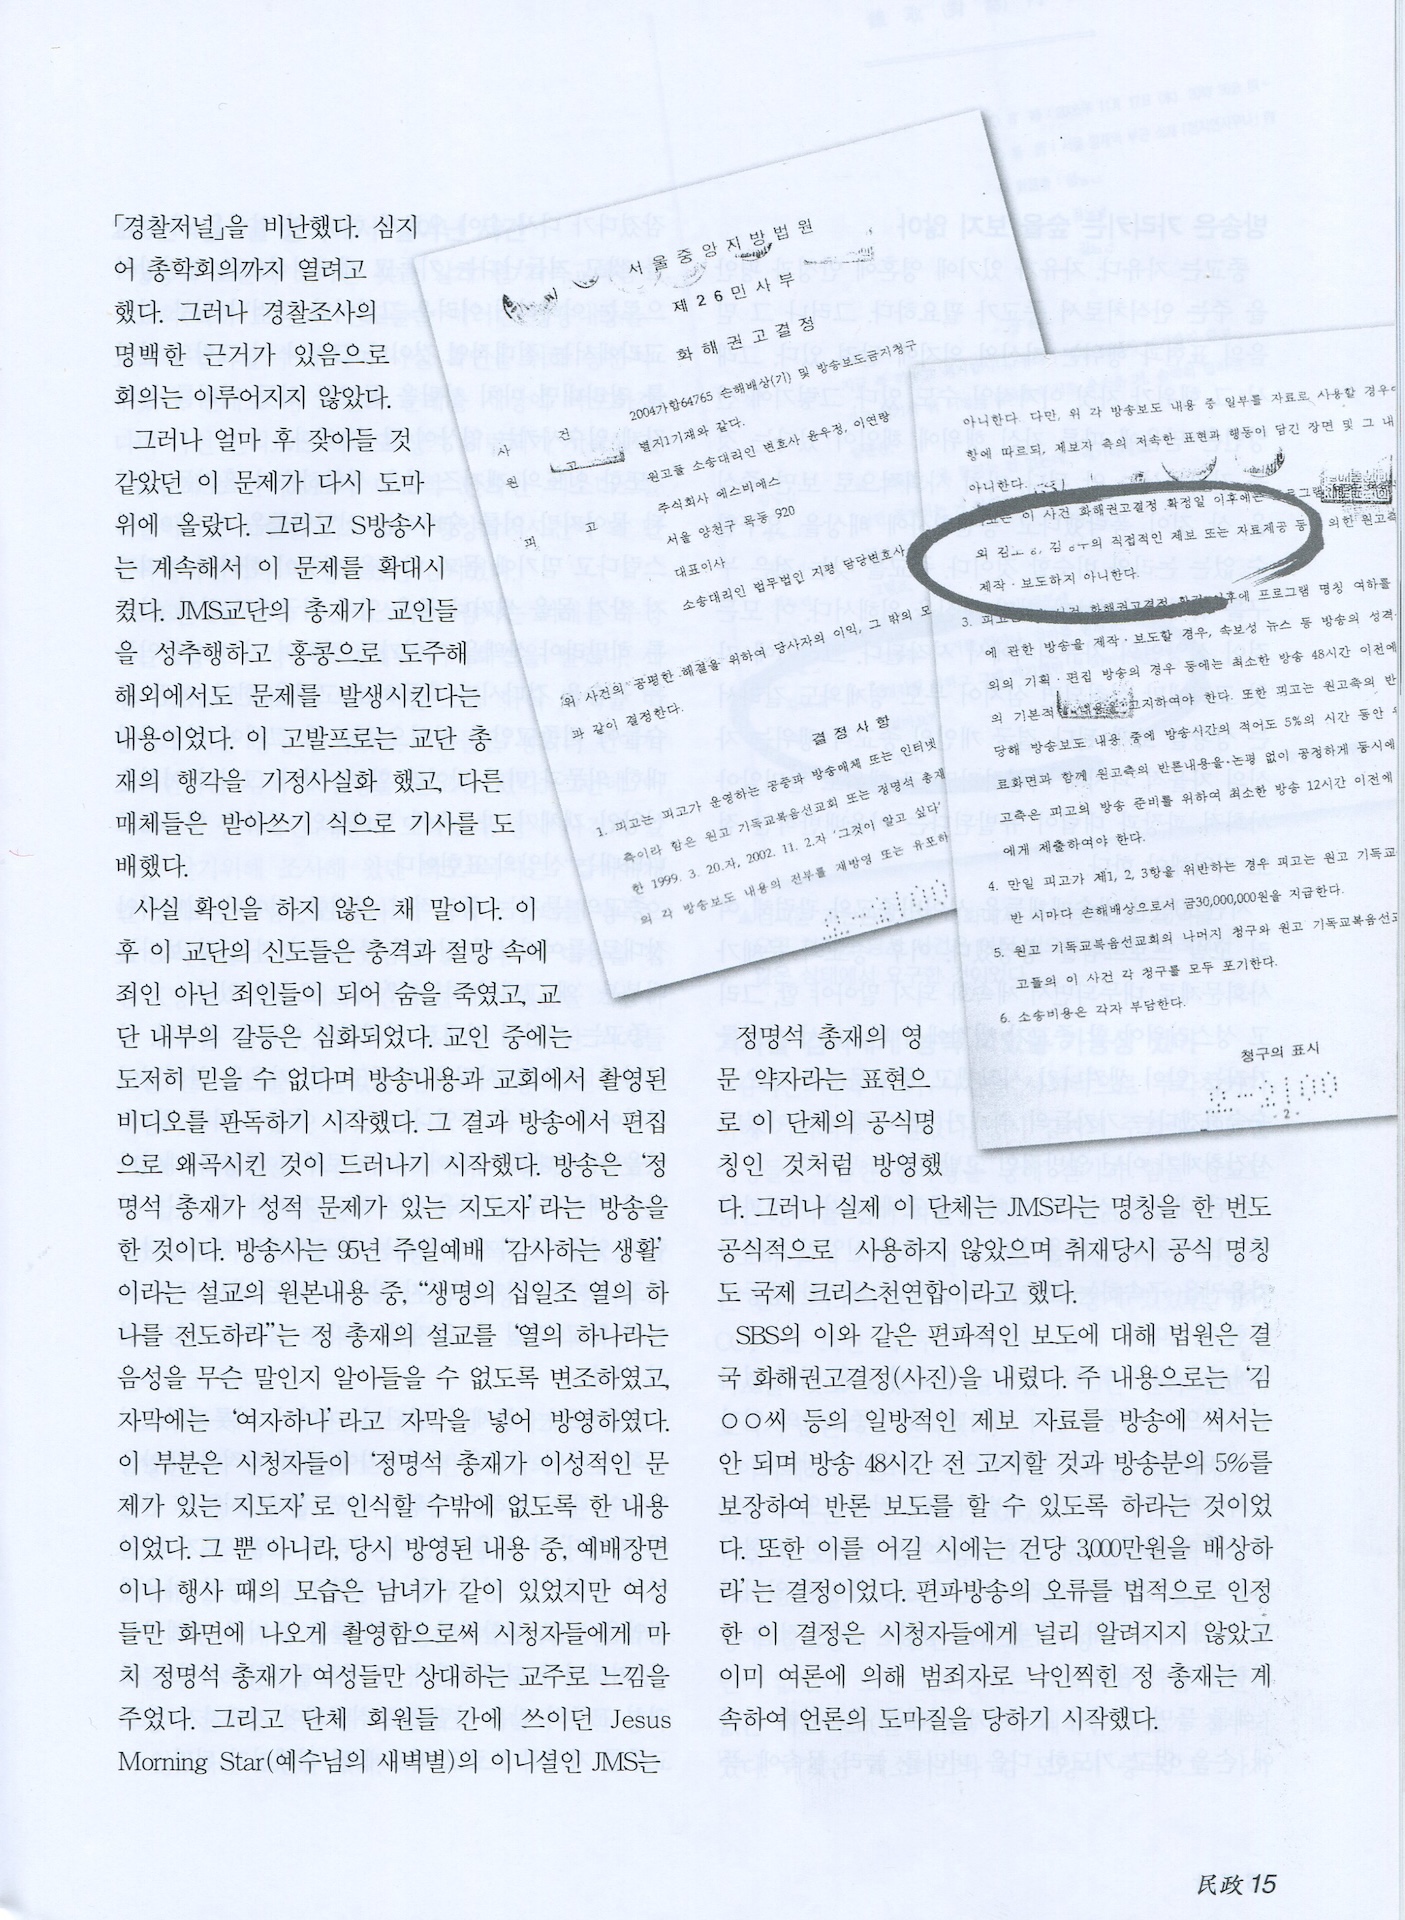 「경찰저널」을 비난했다. 심지
어 총학회의까지 열려고
했다. 그러나 경찰조사의
명백한 근거가 있음으로
회의는 이루어지지 않았다.
그러나 얼마 후 잦아들 것
같았던 이 문제가 다시 도마
위에 올랐다. 그리고 S방송사
는 계속해서 이 문제를 확대시
켰다. JMS교단의 총재가 교인들
을 성추행하고 홍콩으로 도주해
해외에서도 문제를 발생시킨다는
내용이었다. 이 고발프로는 교단 총
재의 행각을 기정사실화 했고, 다른
매체들은 받아쓰기 식으로 기사를 도
배했다.
사실 확인을 하지 않은 채 말이다. 이
후 이 교단의 신도들은 충격과 절망 속에
죄인 아닌 죄인들이 되어 숨을 죽였고, 교
단 내부의 갈등은 심화되었다. 교인 중에는
도저히 믿을 수 없다며 방송내용과 교회에서 촬영된
비디오를 판독하기 시작했다. 그 결과 방송에서 편집
으로 왜곡시킨 것이 드러나기 시작했다. 방송은 ‘정
명석 총재가 성적 문제가 있는 지도자’라는 방송을
한 것이다. 방송사는 95년 주일예배 ‘감사하는 생활’
이라는 설교의 원본내용 중, “생명의 십일조 열의 하
나를 전도하라”는 정 총재의 설교를 ‘열의 하나라는
음성을 무슨 말인지 알아들을 수 없도록 변조하였고,
자막에는 ‘여자하나’라고 자막을 넣어 방영하였다.
이 부분은 시청자들이 ‘정명석 총재가 이성적인 문
제가 있는 지도자’로 인식할 수밖에 없도록 한 내용
이었다. 그 뿐 아니라, 당시 방영된 내용 중, 예배장면
이나 행사 때의 모습은 남녀가 같이 있었지만 여성
들만 화면에 나오게 촬영함으로써 시청자들에게 마
치 정명석 총재가 여성들만 상대하는 교주로 느낌을
주었다. 그리고 단체 회원들 간에 쓰이던 Jesus
Morning Star(예수님의 새벽별)의 이니셜인 JMS는
서울중앙지방법원
제26민사부
화해권고결정
사 건 2004가합64765 손해배상(기) 및 방송보도금지청구
원 고 별지1기재와 같다.
원고들 소송대리인 변호사 윤우정, 이연랑
피 고 주식회사 에스비에스
서울 양천구 목동 920
대표이사
소송대리인 법무법인 지평 담당변호사
위 사건의 공평한 해결을 위하여 당사자의 이익, 그 밖의 모
과 같이 결정한다.
결정사항
1. 피고는 피고가 운영하는 공중파 방송매체 또는 인터넷
측이라 함은 원고 기독교복음선교회 또는 정명석 총재
한 1999. 3. 20.자, 2002. 11. 2.자 ‘그것이 알고 싶다’
의 각 방송보도 내용의 전부를 재방영 또는 유포하
아니한다. 다만, 위 각 방송보도 내용 중 일부를 자료로 사용할 경우
함에 따르되, 제보자 측의 저속한 표현과 행동이 담긴 장면 및 그 내
아니한다.
이 사건 화해권고결정 확정일 이후에는 프로그램
외 김 김 의 직접적인 제보 또는 자료제공 등 의한 원고측
제작·보도하지 아니한다.
3. 피고는 사건 화해권고결정 확정 이후에 프로그램 명칭 여하를
에 관한 방송을 제작·보도할 경우, 속보성 뉴스 등 방송의 성격
외의 기획·편집 방송의 경우 등에는 최소한 방송 48시간 이전에
의 기본적 내용을 고지하여야 한다. 또한 피고는 원고측의 반
당해 방송보도 내용 중에 방송시간의 적어도 5%의 시간 동안
료화면과 함께 원고측의 반론내용을 논평 없이 공정하게 동시에
고측은 피고의 방송 준비를 위하여 최소한 방송 12시간 이전에
에게 제출하여야 한다.
4. 만일 피고가 제1, 2, 3항을 위반하는 경우 피고는 원고 기독교
반 시마다 손해배상으로서 금30,000,000원을 지급한다.
5. 원고 기독교복음선교회의 나머지 청구와 원고 기독교복음선교
고들의 이 사건 각 청구를 모두 포기한다.
6. 소송비용은 각자 부담한다.
청구의 표시
- 2 -
정명석 총재의 영
문 약자라는 표현으
로 이 단체의 공식명
칭인 것처럼 방영했
다. 그러나 실제 이 단체는 JMS라는 명칭을 한 번도
공식적으로 사용하지 않았으며 취재당시 공식 명칭
도 국제 크리스천연합이라고 했다.
SBS의 이와 같은 편파적인 보도에 대해 법원은 결
국 화해권고결정(사진)을 내렸다. 주 내용으로는 ‘김
○○씨 등의 일방적인 제보 자료를 방송에 써서는
안 되며 방송 48시간 전 고지할 것과 방송분의 5%를
보장하여 반론 보도를 할 수 있도록 하라는 것이었
다. 또한 이를 어길 시에는 건당 3,000만원을 배상하
라’는 결정이었다. 편파방송의 오류를 법적으로 인정
한 이 결정은 시청자들에게 널리 알려지지 않았고
이미 여론에 의해 범죄자로 낙인찍힌 정 총재는 계
속하여 언론의 도마질을 당하기 시작했다.
民政 15